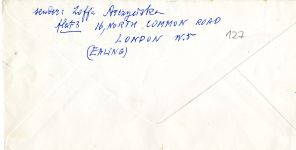 sender: Zoffa
flat 3 16, NORTH COMMON ROAD
LONDON W.5
(EALING)
127